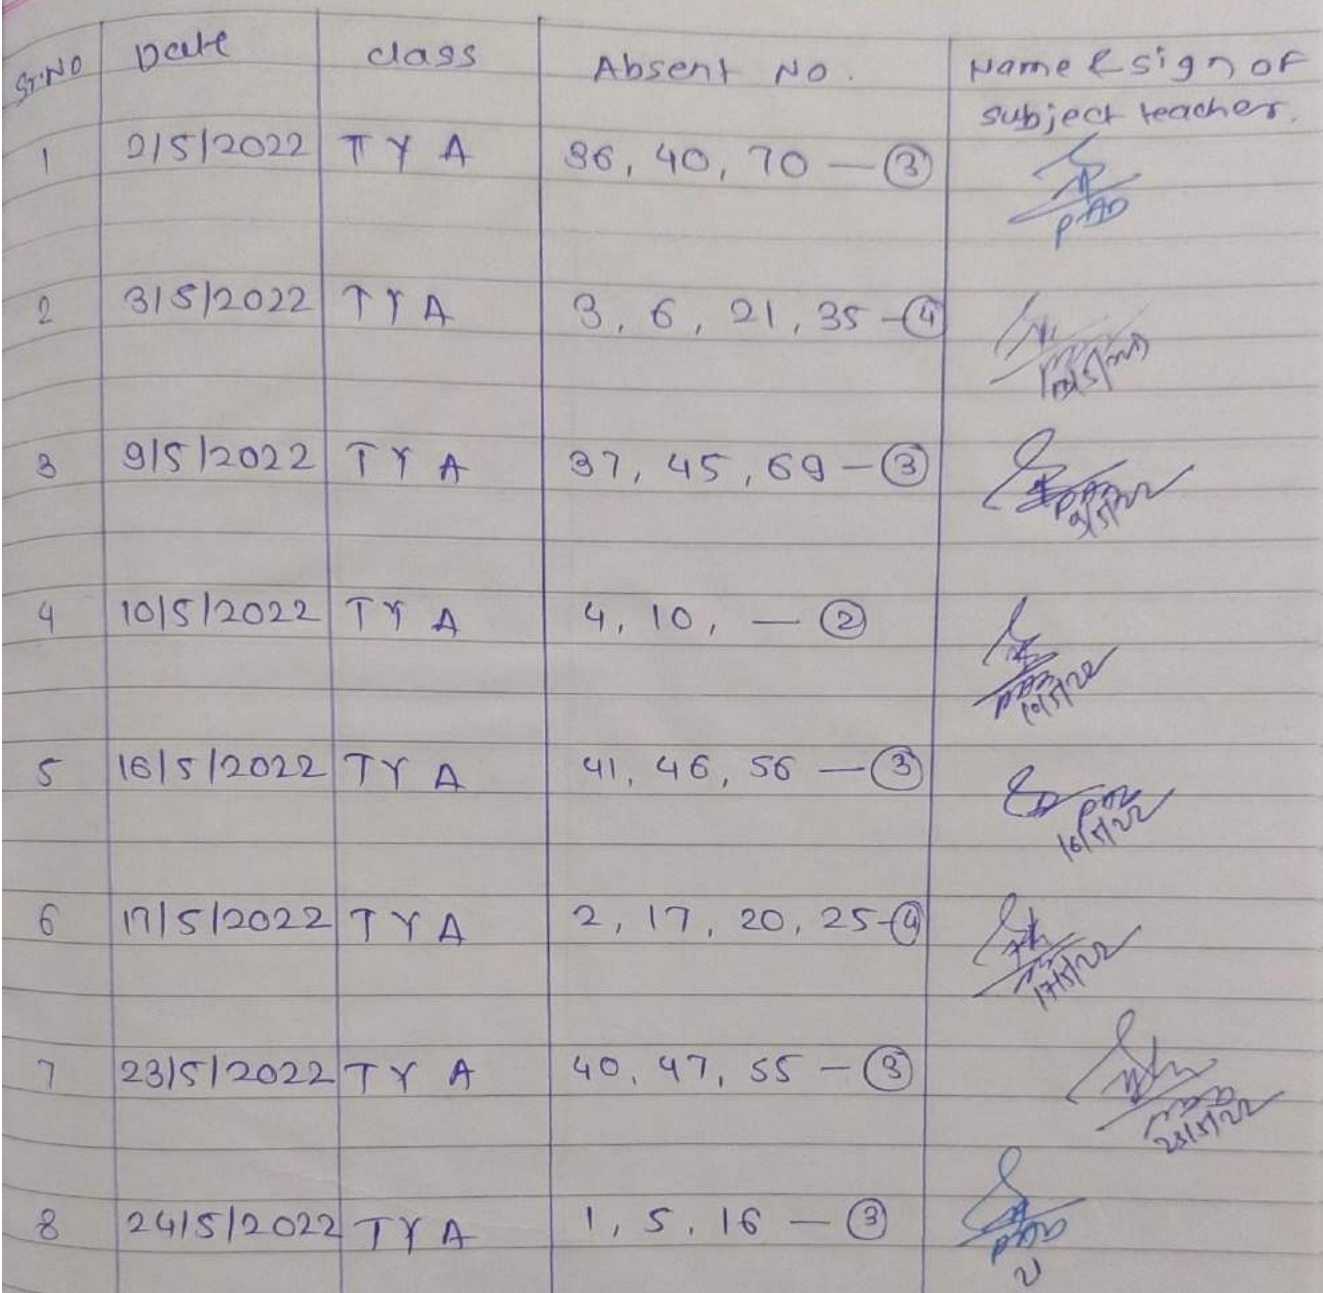 Sr.No Date class Absent No. Name & sign of
subject teacher.
1 2/5/2022 T Y A 36, 40, 70 — 3
2 3/5/2022 T Y A 3, 6, 21, 35 - 4
3 9/5/2022 T Y A 37, 45, 69 - 3
9/5/22
4 10/5/2022 T Y A 4, 10, — 2
10/5/22
5 16/5/2022 T Y A 41, 46, 56 — 3
16/5/22
6 17/5/2022 T Y A 2, 17, 20, 25 - 4
17/5/22
7 23/5/2022 T Y A 40, 47, 55 - 3
23/5/22
8 24/5/2022 T Y A 1, 5, 16 — 3